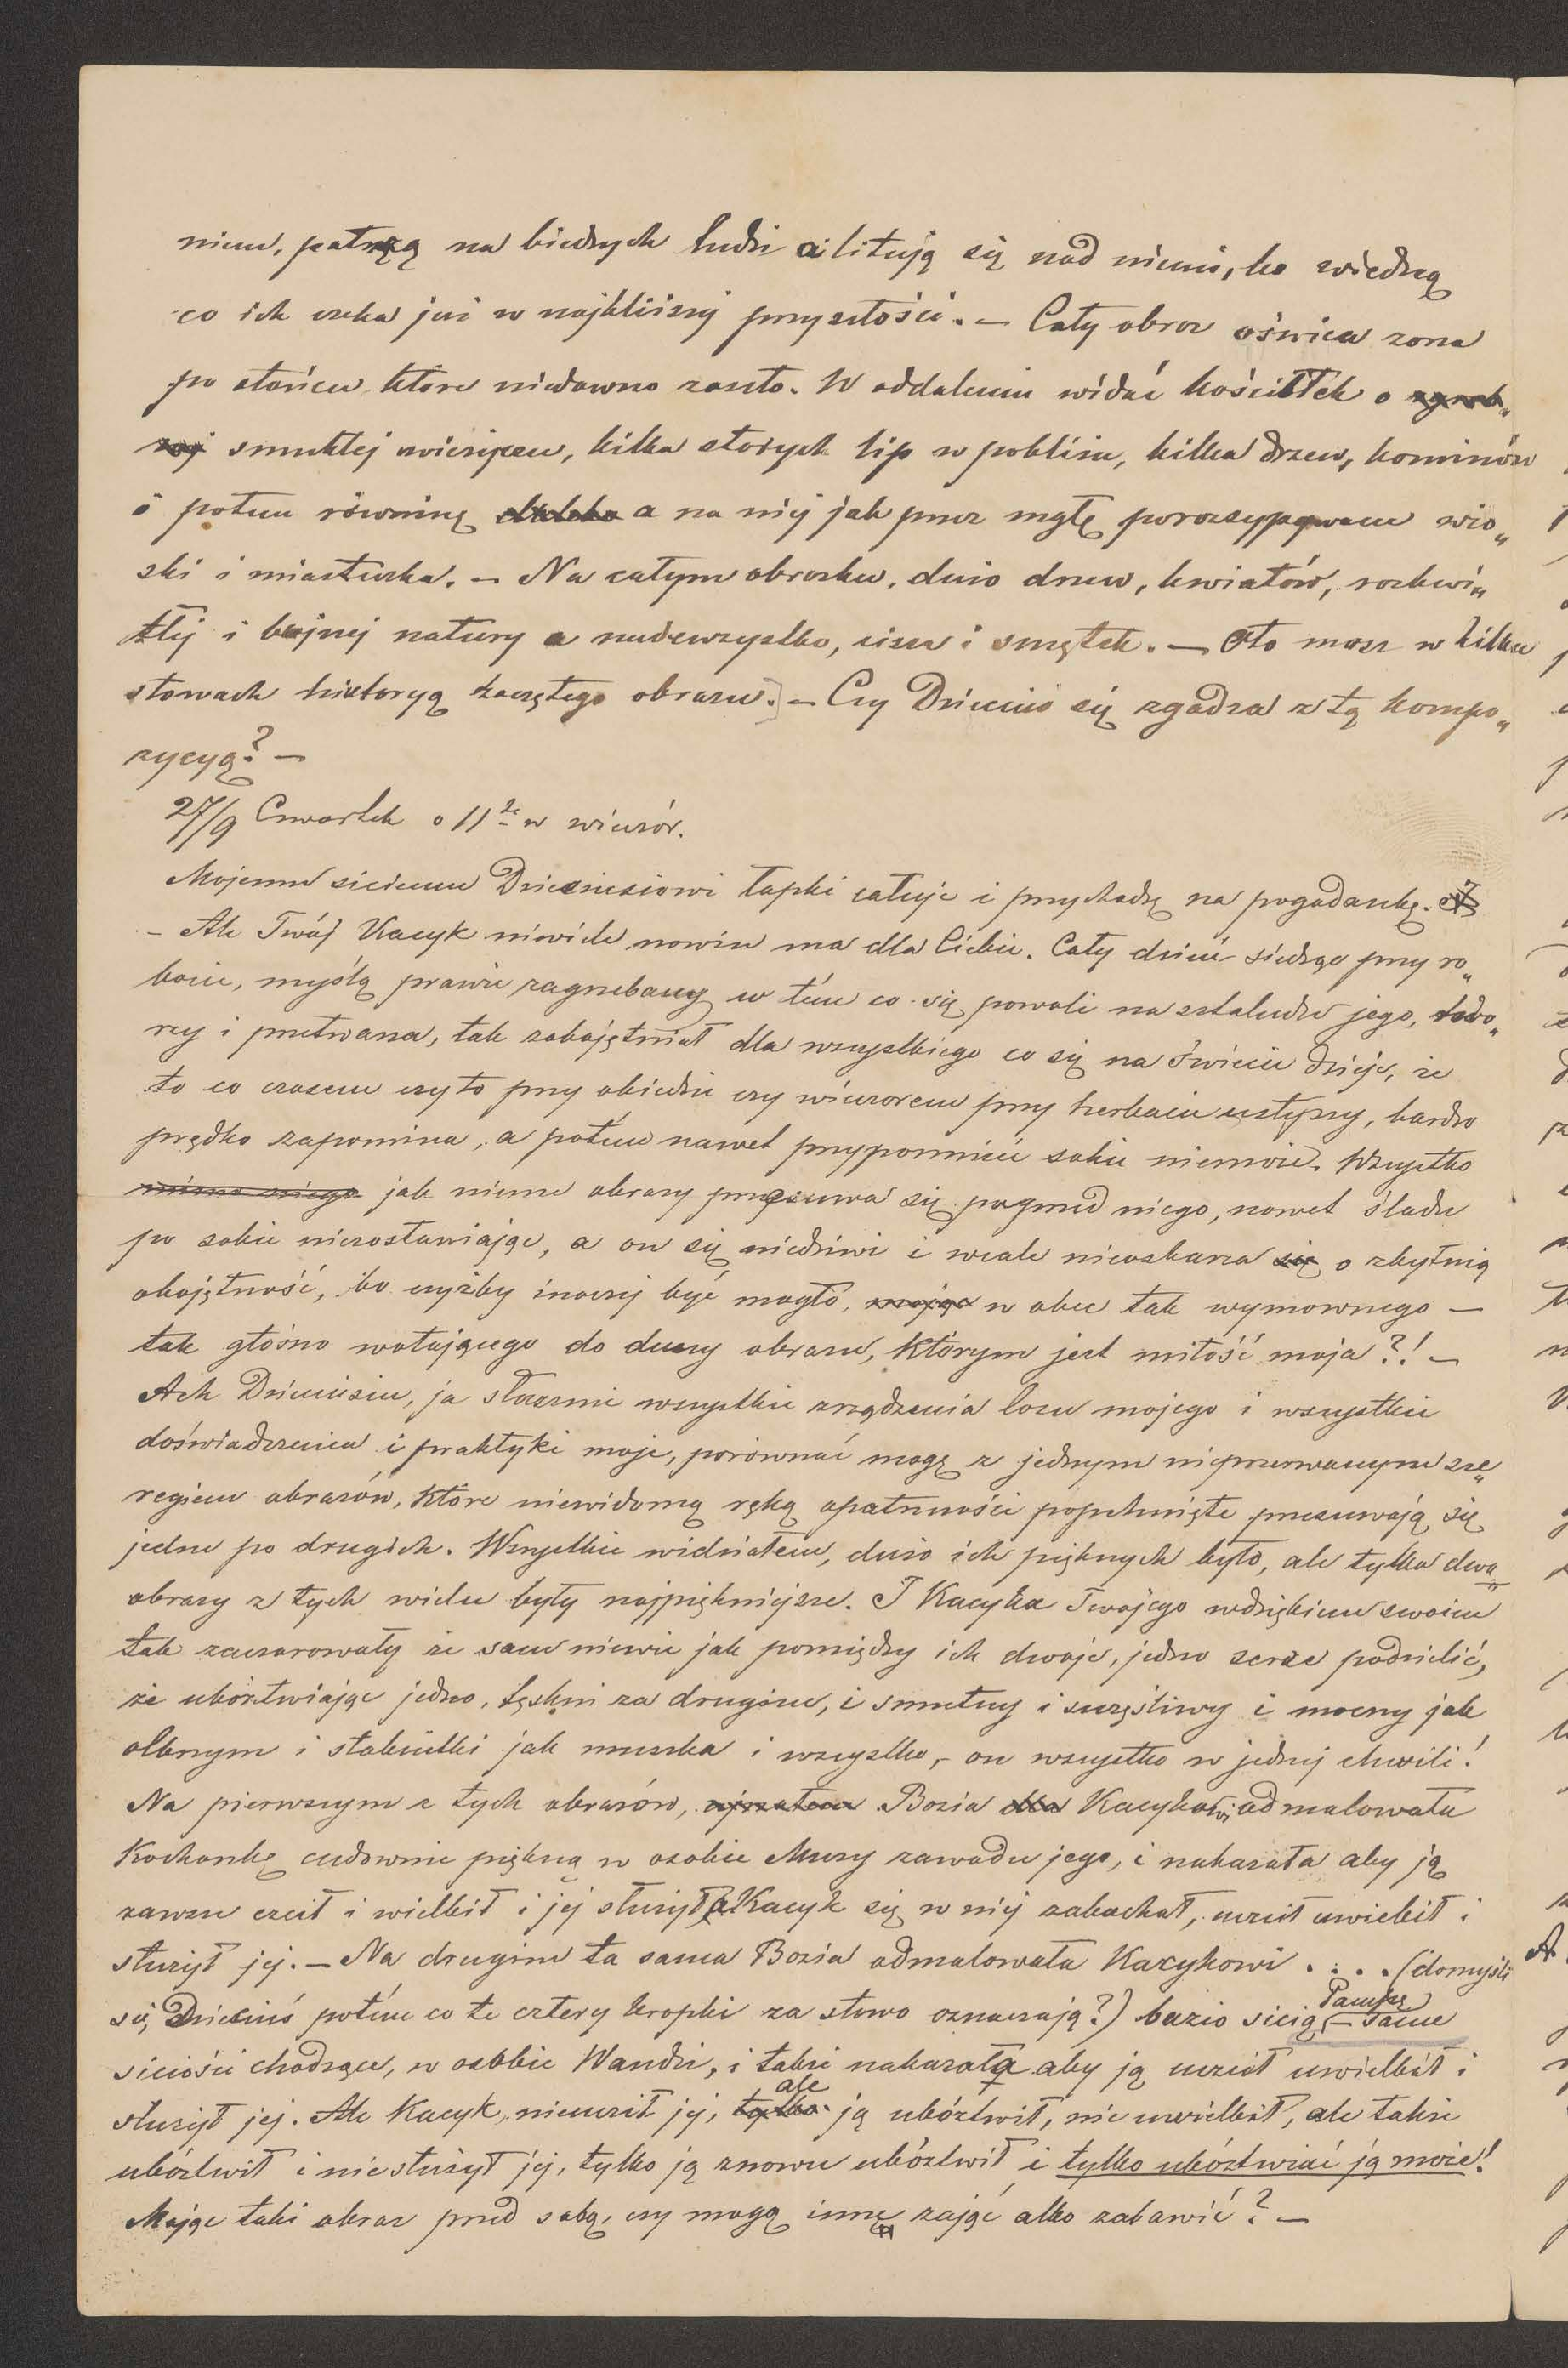 niem, patrzą na biednych ludzi a litują się nad niemi, bo wiedzą
co ich czeka już w najbliższej przyszłości. – Cały obraz oświeca zorza
po słońcu które niedawno zaszło. W oddaleniu widać kościółek o zgrab„
nej smukłej wieżyczce, kilka starych lip w pobliżu, kilka drzew, kominów
i potem równinę daleko a na niej jak przez mgłę porozsypywane wio„
ski i miasteczka. – Na całym obrazku, dużo drzew, kwiatów, rozkwi„
tłej i bujnej natury a nadewszystko, cisza i smętek. – Oto masz w kilku
słowach historyą zaczętego obrazu. – Czy Dzieciuś się zgadza z tą kompo„
zycyą? –
27/9 Czwartek o 11ej w wieczór.
Mojemu siciemu Dzieciusiowi łapki całuje i przychodzę na pogadankę.
– Ale Twój Kacyk niewiele nowin ma dla Ciebie. Cały dzień siedząc przy ro„
bocie, myślą prawie zagrzebany w tém co się powoli na sztaludze jego, two„
rzy i przetwarza, tak zobojętniał dla wszystkiego co się na świecie dzieje, że
to co czasem czy to przy obiedzie czy wieczorem przy herbacie usłyszy, bardzo
prędko zapomina, a potém nawet przypomnieć sobie niemoże. Wszystko
mimo niego jak nieme obrazy przesuwa się poprzed niego, nawet śladu
po sobie niezostawiając, a on się niedziwi i wcale nieoskarża się o zbytnią
obojętność, bo czyżby inaczej być mogło, mając w obec tak wymownego –
tak głośno wołającego do duszy obrazu, którym jest miłość moja?! –
Ach Dzieciusiu, ja słusznie wszystkie zrządzenia losu mojego i wszystkie
doświadczenia i praktyki moje, porównać mogę z jednym nieprzerwanym sze„
regiem obrazów, które niewidomą ręką opatrzności popchnięte przesuwają się
jedne po drugich. Wszystkie widziałem, dużo ich pięknych było, ale tylko dwa
obrazy z tych wielu były najpiękniejsze. I Kacyka Twojego wdziękiem swoim
tak zaczarowały że sam niewie jak pomiędzy ich dwoje, jedno serce podzielić,
że ubóztwiając jedno, tęskni za drugiem, i smutny i szczęśliwy i mocny jak
olbrzym i słabiutki jak muszka i wszystko, – on wszystko w jednej chwili!
Na pierwszym z tych obrazów, ujrzałem Bozia dla Kacykowi odmalowała
Kochankę cudownie piękną w osobie Muzy zawodu jego, i nakazała aby ją
zawsze czcił i wielbił i jej służył a Kacyk się w niej zakochał, uczcił uwielbił i
służył jej. – Na drugim ta sama Bozia odmalowała Kacykowi . . . . (domyśli
się Dzieciuś potém co te cztery kropki za słowo oznaczają?) buzio sicią – Pampę same
siciości chodzące, w osobie Wandzi, i także nakazała aby ją uczcił uwielbił i
służył jej. Ale Kacyk, nieuczcił jej, tylko ale ją ubóztwił, nie uwielbił, ale także
ubóztwił i niesłużył jéj, tylko ją znowu ubóztwił i tylko ubóztwiać ją może!
Mając taki obraz przed sobą, czy mogą inne zająć albo zabawić? –